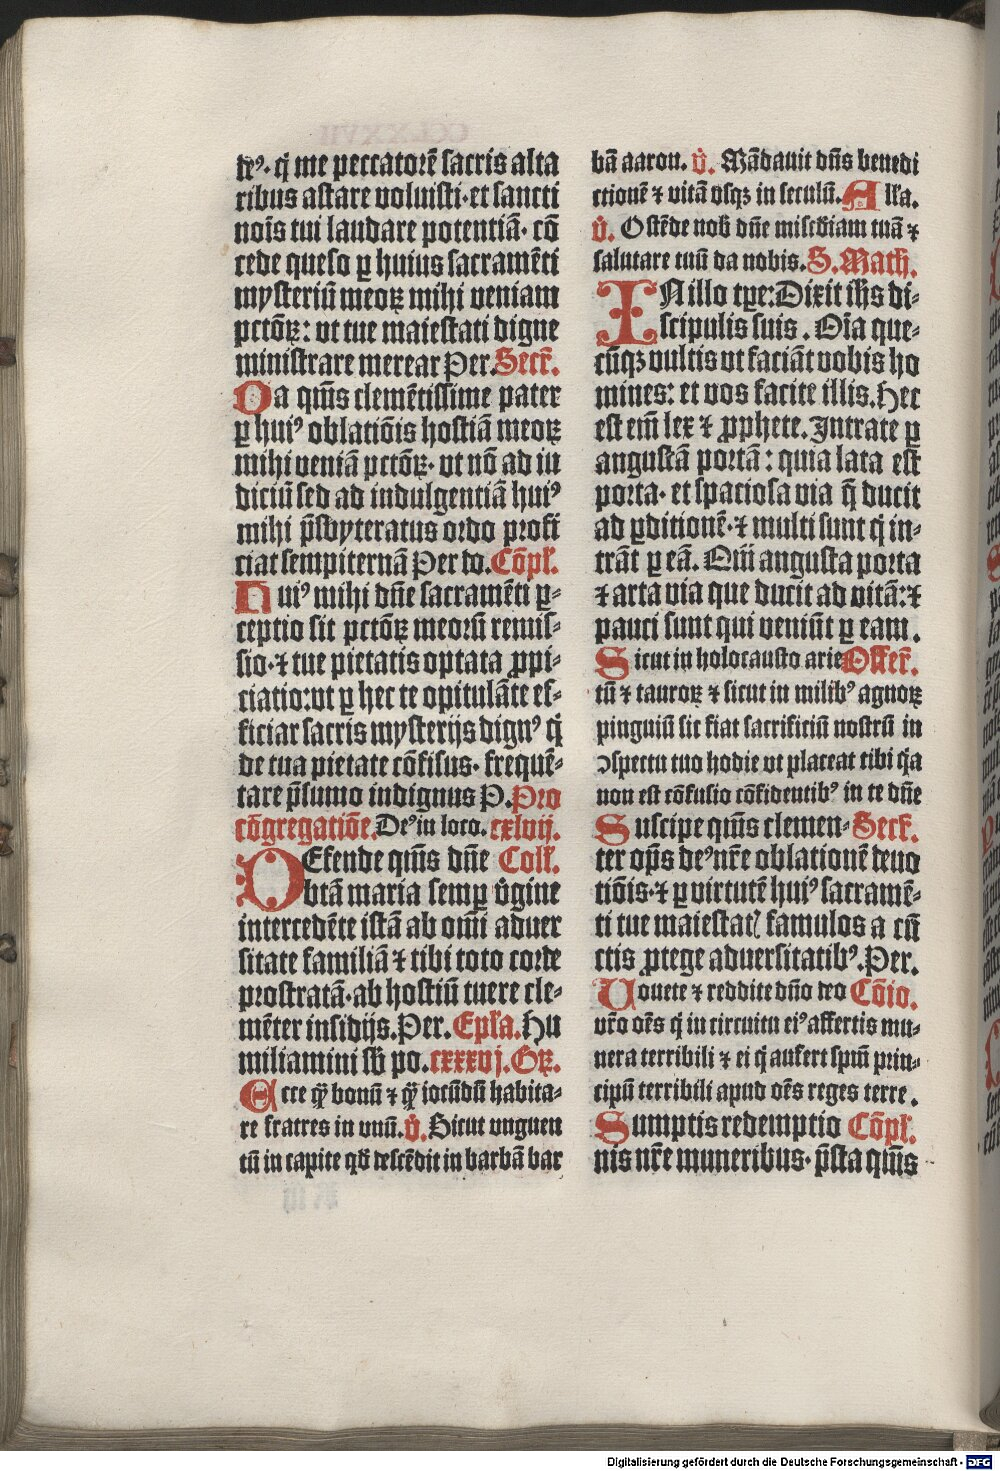 deꝰ· q̇ me peccatorē sacris alta
ribus astare voluisti· et sancti
noīs tui laudare potentiā· cō
cede queso ꝑ huius sacramēti
mysteriū meoꝝ mihi veniam
pctōꝝ: vt tue maiestati digne
ministrare merear Per. Secr̄.
Da qm̄s clemētissime pater
ꝑ huiꝰ oblatiōis hostiā meoꝝ
mihi veniā pctōꝝ· vt nō ad iu
diciū sed ad indulgentiā huiꝰ
mihi p̄sbyteratus ordo profi
ciat sempiternā Per do. Cōpl̄.
Huiꝰ mihi dn̄e sacramēti ꝑ-
ceptio sit pctōꝝ meorū remis-
sio· ⁊ tue pietatis optata ꝓpi-
ciatio: vt ꝑ hec te opitulāte ef-
ficiar sacris mysterijs dignꝰ q̇
de tua pietate cōfisus· frequē-
tare p̄sumo indignus P. Pro
cōgregatiōe. Deꝰ in loco. cxlvij.
DEfende qm̄s dn̄e Coll̄.
bt̄ā maria semꝑ v̇gine
intercedēte istā ab omī aduer
sitate familiā ⁊ tibi toto corde
prostratā· ab hostiū tuere cle-
mēter insidijs. Per. Epl̄a. Hu
miliamini sb̄ po. cxxxvj. Gꝝ.
Ecce q̄ꝫ bonū ⁊ q̄ꝫ iocūdū habita-
re fratres in vnū. v̇. Sicut vnguen
tū in capite qd̄ descēdit in barbā bar
bā aaron. v̇. Mādauit dn̄s benedi
ctionē ⁊ vitā vsqꝫ in seculū. All̄a.
v̇. Ostēde nob̄ dn̄e misc̄diam tuā ⁊
salutare tuū da nobis. S. Math.
IN illo tꝑe: Dixit ih̄s di-
scipulis suis. Oīa que-
cūqꝫ vultis vt faciāt vobis ho
mines: et vos facite illis. Hec
est em̄ lex ⁊ ꝓphete. Intrate ꝑ
angustā portā: quia lata est
porta· et spaciosa via q̄ ducit
ad ꝑditionē· ⁊ multi sunt q̇ in-
trāt ꝑ eā. Qm̄ angusta porta
⁊ arta via que ducit ad vitā: ⁊
pauci sunt qui veniūt ꝑ eam.
Sicut in holocausto arie Offer̄.
tū ⁊ tauroꝝ ⁊ sicut in milibꝰ agnoꝝ
pinguiū sic fiat sacrificiū nostrū in
ↄspectu tuo hodie vt placeat tibi q̇a
non est cōfusio cōfidentibꝰ in te dn̄e
Suscipe qm̄s clemen- Secr̄.
ter op̄s deꝰ nr̄e oblationē deuo
tiōis· ⁊ ꝑ virtutē huiꝰ sacramē-
ti tue maiestatꝭ famulos a cū
ctis ꝓtege aduersitatibꝰ. Per.
Vouete ⁊ reddite dn̄o deo Cōio.
vr̄o oēs q̇ in circuitu eiꝰ affertis mu-
nera terribili ⁊ ei q̇ aufert spm̄ prin-
cipū terribili apud oēs reges terre.
Sumptis redemptio Cōpl̄.
nis nr̄e muneribus· p̄sta qm̄s
Digitalisierung gefördert durch die Deutsche Forschungsgemeinschaft - DFG